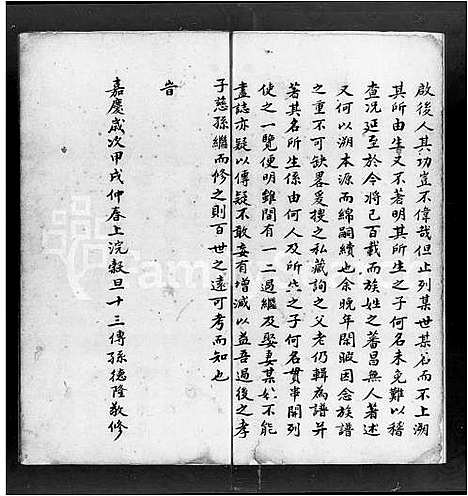 啟後人其功豈不偉哉但止列某世某名而不上溯
其所由生又不著明其所生之子何名未免難以稽
查况延至於今將已百載而族姓之蕃昌無人著述
又何以溯本源而綿嗣續也余晚年閒暇因念族譜
之重不可缺畧爰搜之私藏詢之父老仍輯為譜并
著其名所生係由何人及所生之子何名貫串開列
使之一覽便明雖間有一二過繼及娶妻某氏不能
盡誌亦疑以傳疑不敢妄有增減以益吾過後之孝
子慈孫繼而修之則百世之遠可考而知也
旹
嘉慶歲次甲戌仲春上浣穀旦十三傳孫德隆敬修